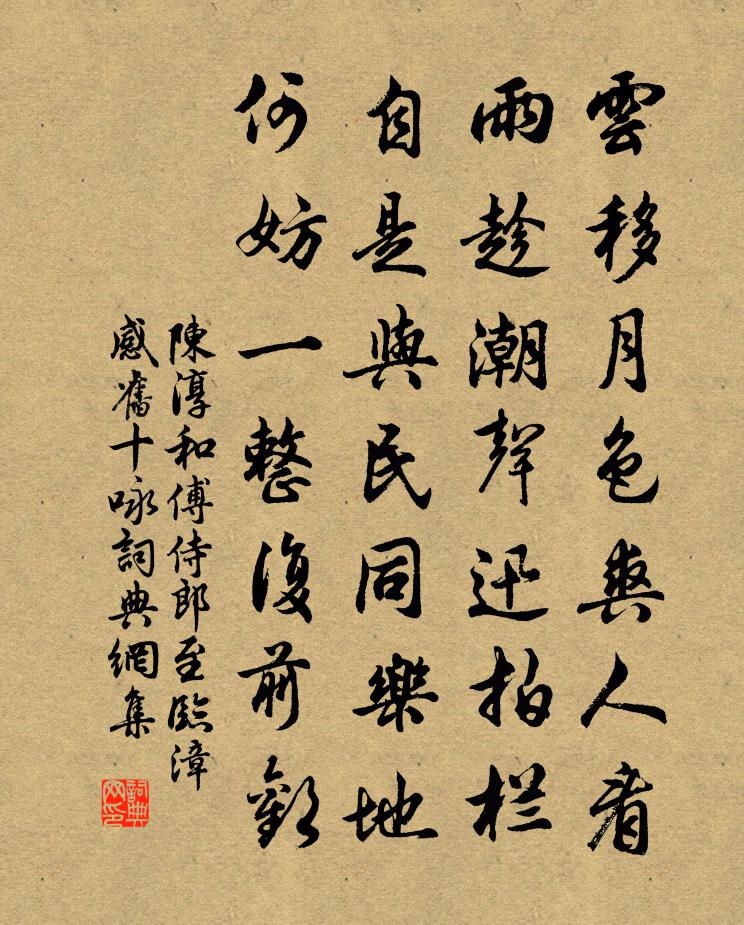 雲移月色爽人看
雨趁潮聲迅拍栏
自是與民同樂地
何妨一整復前觀
陳淳和傅侍郎至臨漳
感舊十咏詞典網集
詞典网印